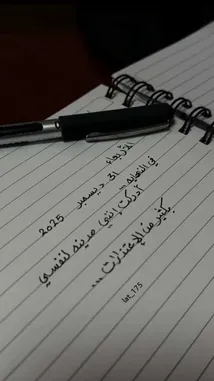 الأربعاء
31 ديسمبر 2025
في النهاية...
أدركت إنني مدينه لنفسي
بكثير من الإعتذارات...
lat_175